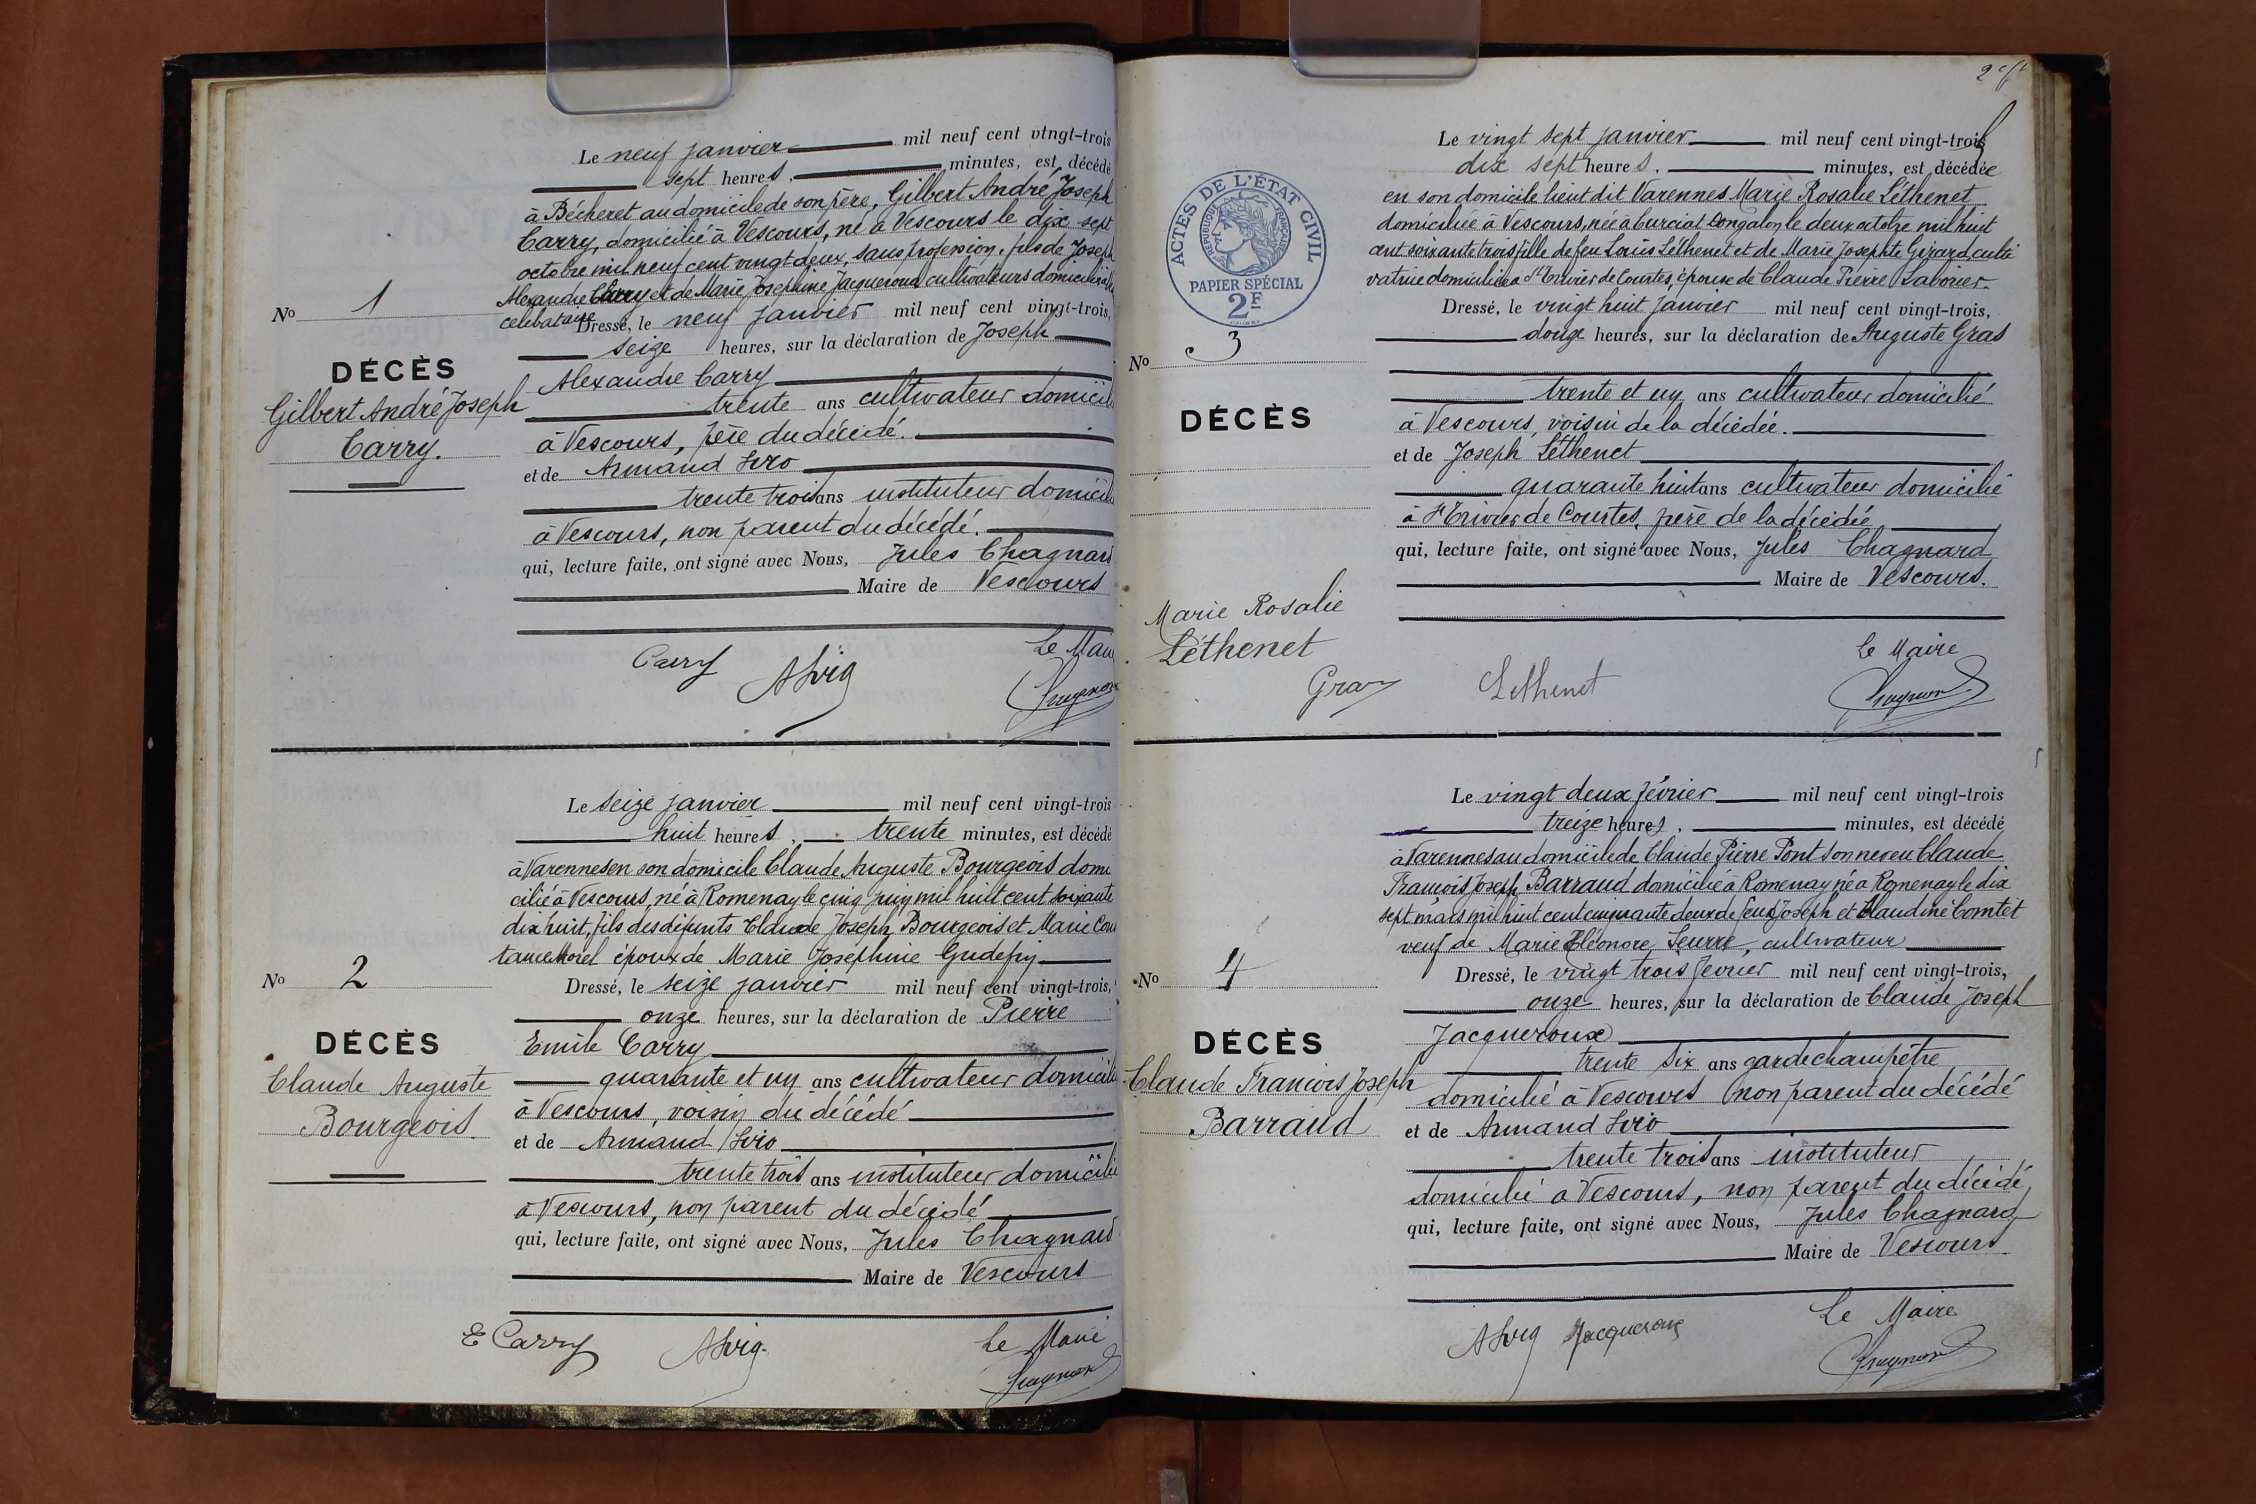 Le neuf janvier mil neuf cent vingt-trois
sept heures, minutes, est décédé
à Bécheret au domicile de son père, Gilbert André Joseph
Carry, domicilié à Vescours, né à Vescours le dix sept
octobre mil neuf cent vingt deux, sans profession, fils de Joseph
Alexandre Carry et de Marie Joséphine Jacqueroux cultivateurs domiciliés
célibataire
Dressé, le neuf janvier mil neuf cent vingt-trois,
seize heures, sur la déclaration de Joseph
Alexandre Carry
trente ans cultivateur domicilié
à Vescours, père du décédé.
et de Armand
trente trois ans instituteur domicilié
à Vescours, non parent du décédé.
qui, lecture faite, ont signé avec Nous, Jules Chagnard
Maire de Vescours
No 1
DÉCÈS
Gilbert André Joseph
Carry.
Carry
Le Maire
Le seize janvier mil neuf cent vingt-trois
huit heures, trente minutes, est décédé
à Varennes en son domicile Claude Auguste Bourgeois domi
cilié à Vescours, né à Romenay le cinq juin mil huit cent soixante
dix huit, fils des défunts Claude Joseph Bourgeois et Marie Cons
tance Morel époux de Marie Joséphine Gudefin
Dressé, le seize janvier mil neuf cent vingt-trois,
onze heures, sur la déclaration de Pierre
Emile Carry
quarante et un ans cultivateur domicilié
à Vescours, voisin du décédé
et de Armand
trente trois ans instituteur domicilié
à Vescours, non parent du décédé
qui, lecture faite, ont signé avec Nous, Jules Chagnard
Maire de Vescours
No 2
DÉCÈS
Claude Auguste
Bourgeois.
E Carry
Le Maire
ACTES DE L'ÉTAT CIVIL
RÉPUBLIQUE FRANÇAISE
PAPIER SPÉCIAL
2F
Le vingt sept janvier mil neuf cent vingt-trois
dix sept heures, minutes, est décédée
en son domicile lieut dit Varennes Marie Rosalie Léthenet
domiciliée à Vescours, née à Curciat Dongalon le deux octobre mil huit
cent soixante trois fille de feu Louis Léthenet et de Marie Josephte Gérard, culti
vatrice domiciliée à St Trivier de Courtes, épouse de Claude Pierre
Dressé, le vingt huit janvier mil neuf cent vingt-trois,
douze heures, sur la déclaration de Auguste Gras
trente et un ans cultivateur domicilié
à Vescours, voisin de la décédée.
et de Joseph Léthenet
quarante huit ans cultivateur domicilié
à St Trivier de Courtes, père de la décédée
qui, lecture faite, ont signé avec Nous, Jules Chagnard
Maire de Vescours.
No 3
DÉCÈS
Marie Rosalie
Léthenet
Gras
Lethenet
Le Maire
Le vingt deux février mil neuf cent vingt-trois
treize heures, minutes, est décédé
à Varennes au domicile de Claude Pierre Pont son neveu Claude
François Joseph Barraud domicilié à Romenay né à Romenay le dix
sept mars mil huit cent cinquante deux de feus Joseph et Claudine Comtet
veuf de Marie Eléonore Seurre, cultivateur
Dressé, le vingt trois février mil neuf cent vingt-trois,
onze heures, sur la déclaration de Claude Joseph
Jacqueroux
trente six ans garde champêtre
domicilié à Vescours non parent du décédé
et de Armand
trente trois ans instituteur
domicilié à Vescours, non parent du décédé,
qui, lecture faite, ont signé avec Nous, Jules Chagnard
Maire de Vescours.
No 4
DÉCÈS
Claude François Joseph
Barraud
Jacqueroux
Le Maire